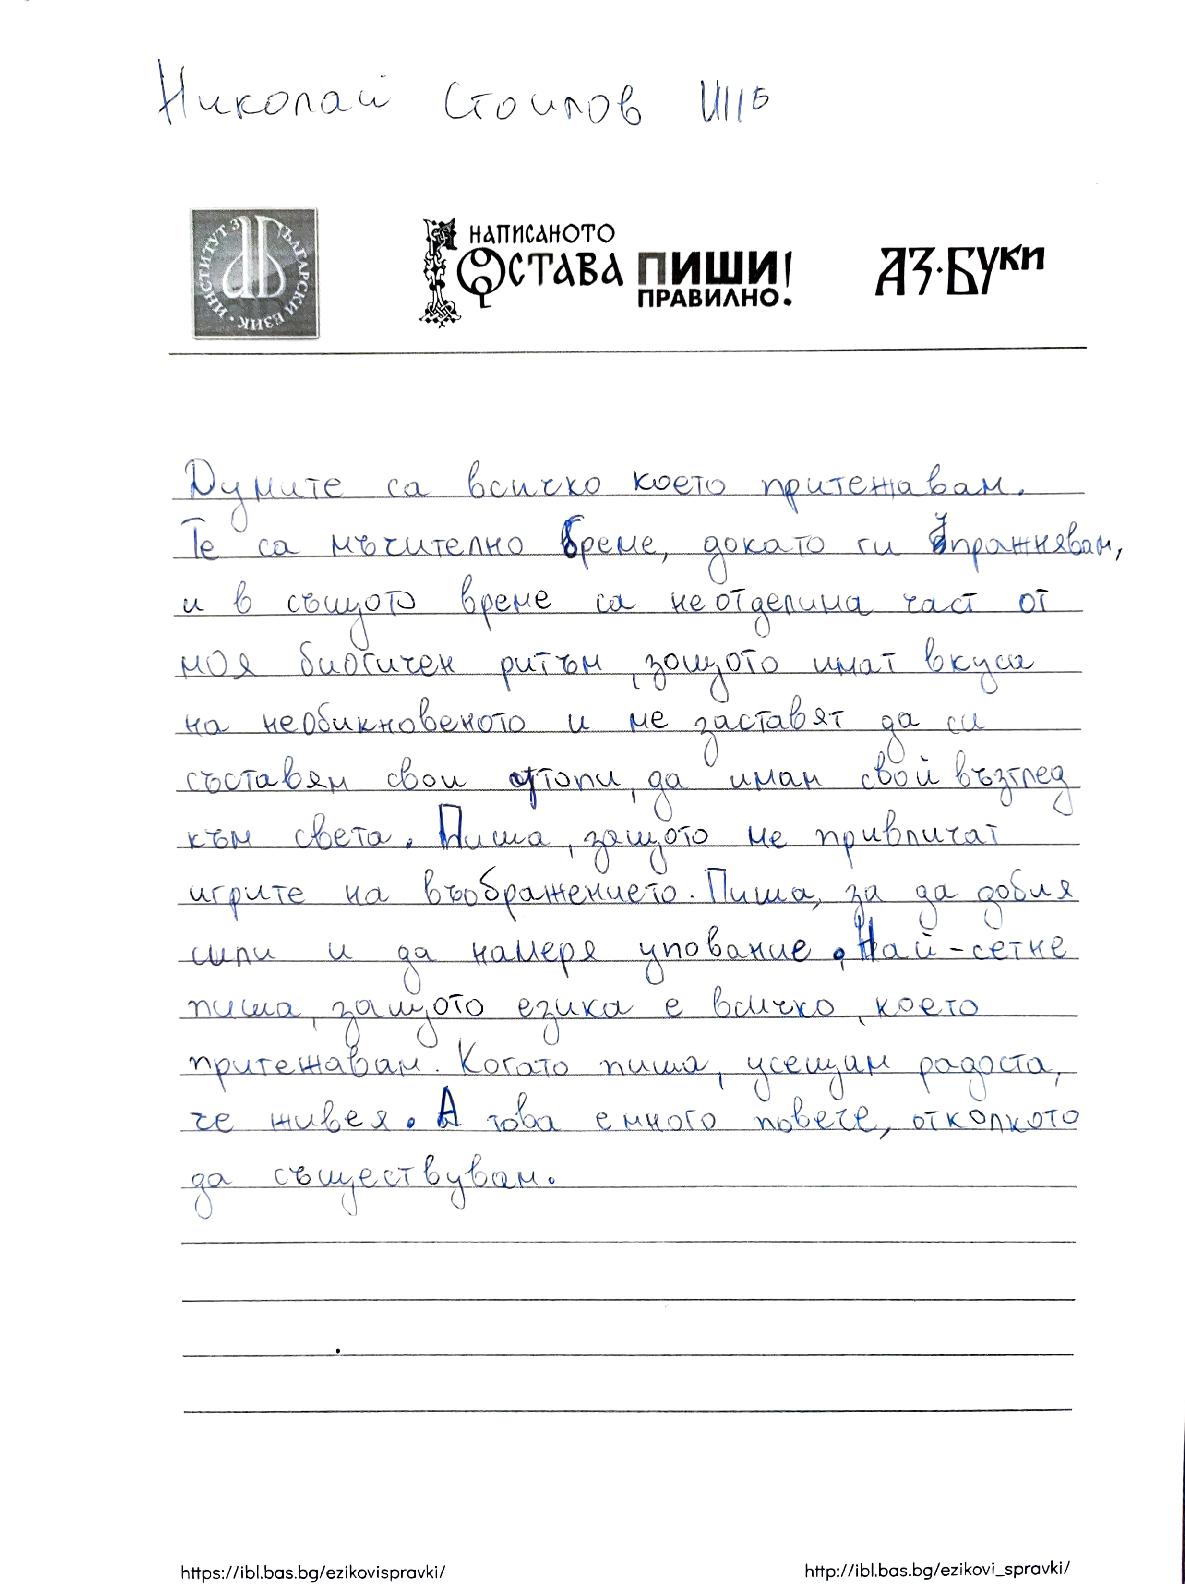 Николай Стоилов VIIIб
ИНСТИТУТ ЗА БЪЛГАРСКИ ЕЗИК
НАПИСАНОТО
ОСТАВА ПИШИ!
ПРАВИЛНО.
АЗ·БУКИ
Думите са всичко което притежавам.
Те са мъчително бреме, докато ги упражнявам,
и в същото време са неотделима част от
моя биогичен ритъм, защото имат вкуса
на необикновеното и ме заставят да си
съставям свои утопи, да имам свой възглед
към света. Пиша, защото ме привличат
игрите на въображението. Пиша, за да добия
сили и да намеря упование. Най-сетне
пиша, защото езика е всичко, което
притежавам. Когато пиша, усещам радоста,
че живея. А това е много повече, отколкото
да съществувам.
https://ibl.bas.bg/ezikovispravki/
http://ibl.bas.bg/ezikovi_spravki/